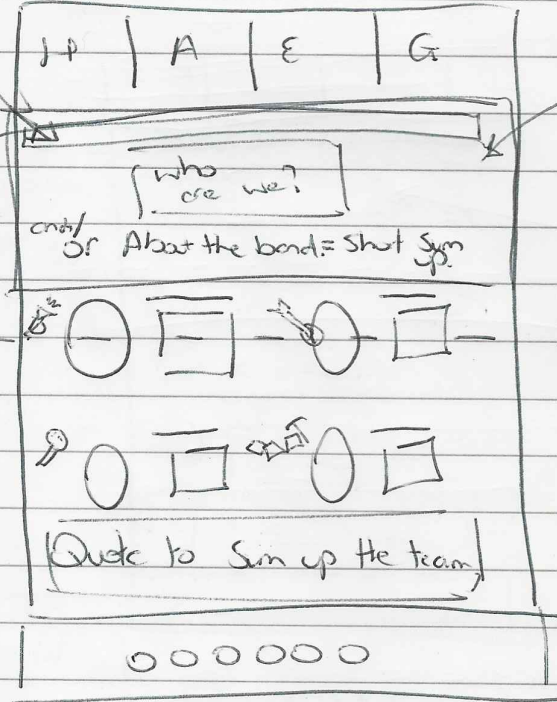 HP A E G
who
are we?
and/
or About the band = Short Sum
up.
Quote to Sum up the team